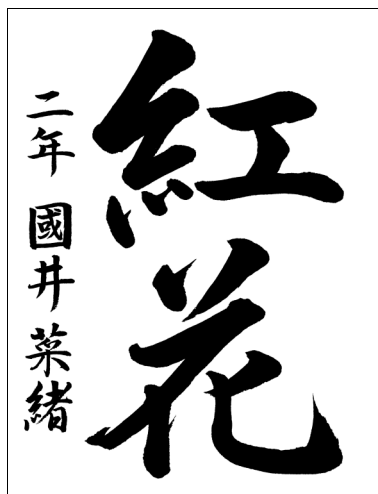 紅花
二年 國井 菜緒